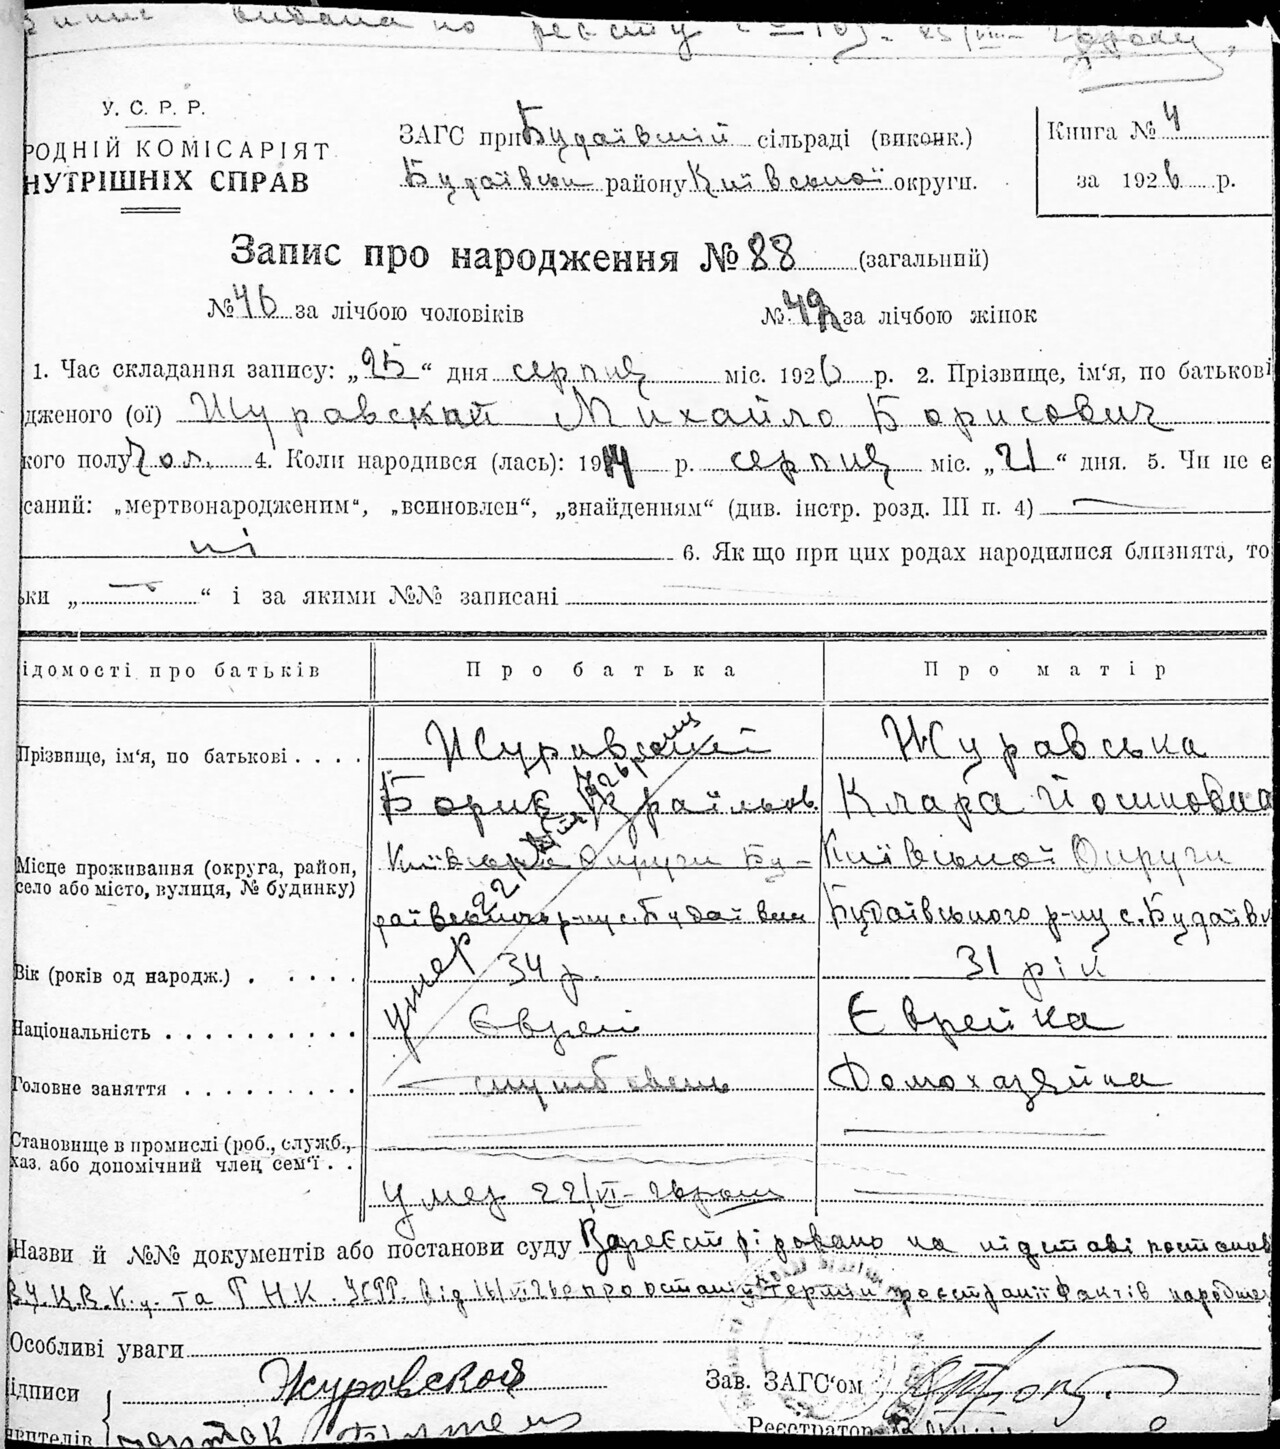 У. С. Р. Р.
РОДНІЙ КОМІСАРІЯТ
НУТРІШНІХ СПРАВ
ЗАГС при Будаївській сільраді (виконк.)
Будаївськ району Київської округи.
Книга № 4
за 1926 р.
Запис про народження № 88 (загальний)
№ 46 за лічбою чоловіків
№ 42 за лічбою жінок
1. Час складання запису: „25“ дня серпня міс. 1926 р. 2. Прізвище, ім'я, по батькові
дженого (ої) Журавский Михайло Борисович
кого полу Чол. 4. Коли народився (лась): 1914 р. серпня міс. „21“ дня. 5. Чи не є
саний: „мертвонародженим“, „всиновлен“, „знайденням“ (див. інстр. розд. III п. 4)
ні 6. Як що при цих родах народилися близнята, то
ки „ “ і за якими №№ записані
ідомості про батьків
Про батька
Про матір
Прізвище, ім'я, по батькові
Журавський
Борис Ізраїльов.
Журавська
Клара Йошковна
Місце проживання (округа, район,
село або місто, вулиця, № будинку)
Київської Округи Бу-
даївського р-ну с. Будаївка
Київської Округи
Будаївського р-ну с. Будаївк
Вік (років од народж.)
34 р.
31 рік
Національність
Єврей
Єврейка
Головне заняття
службовець
Домохазяйка
умер 22/VI 1926 року
Становище в промислі (роб., служб.,
хаз. або допомічний член сем'ї
умер 22/VI-26 року
Назви й №№ документів або постанови суду Зареєстрировано на підставі постанов
В.У.Ц.В.К.у. та РНК. УСРР. від 16/VI 26 р про останній термін реєстрації фактів народже
Особливі уваги
ідписи
Журовской
Зав. ЗАГС'ом
явителів
Реєстратор